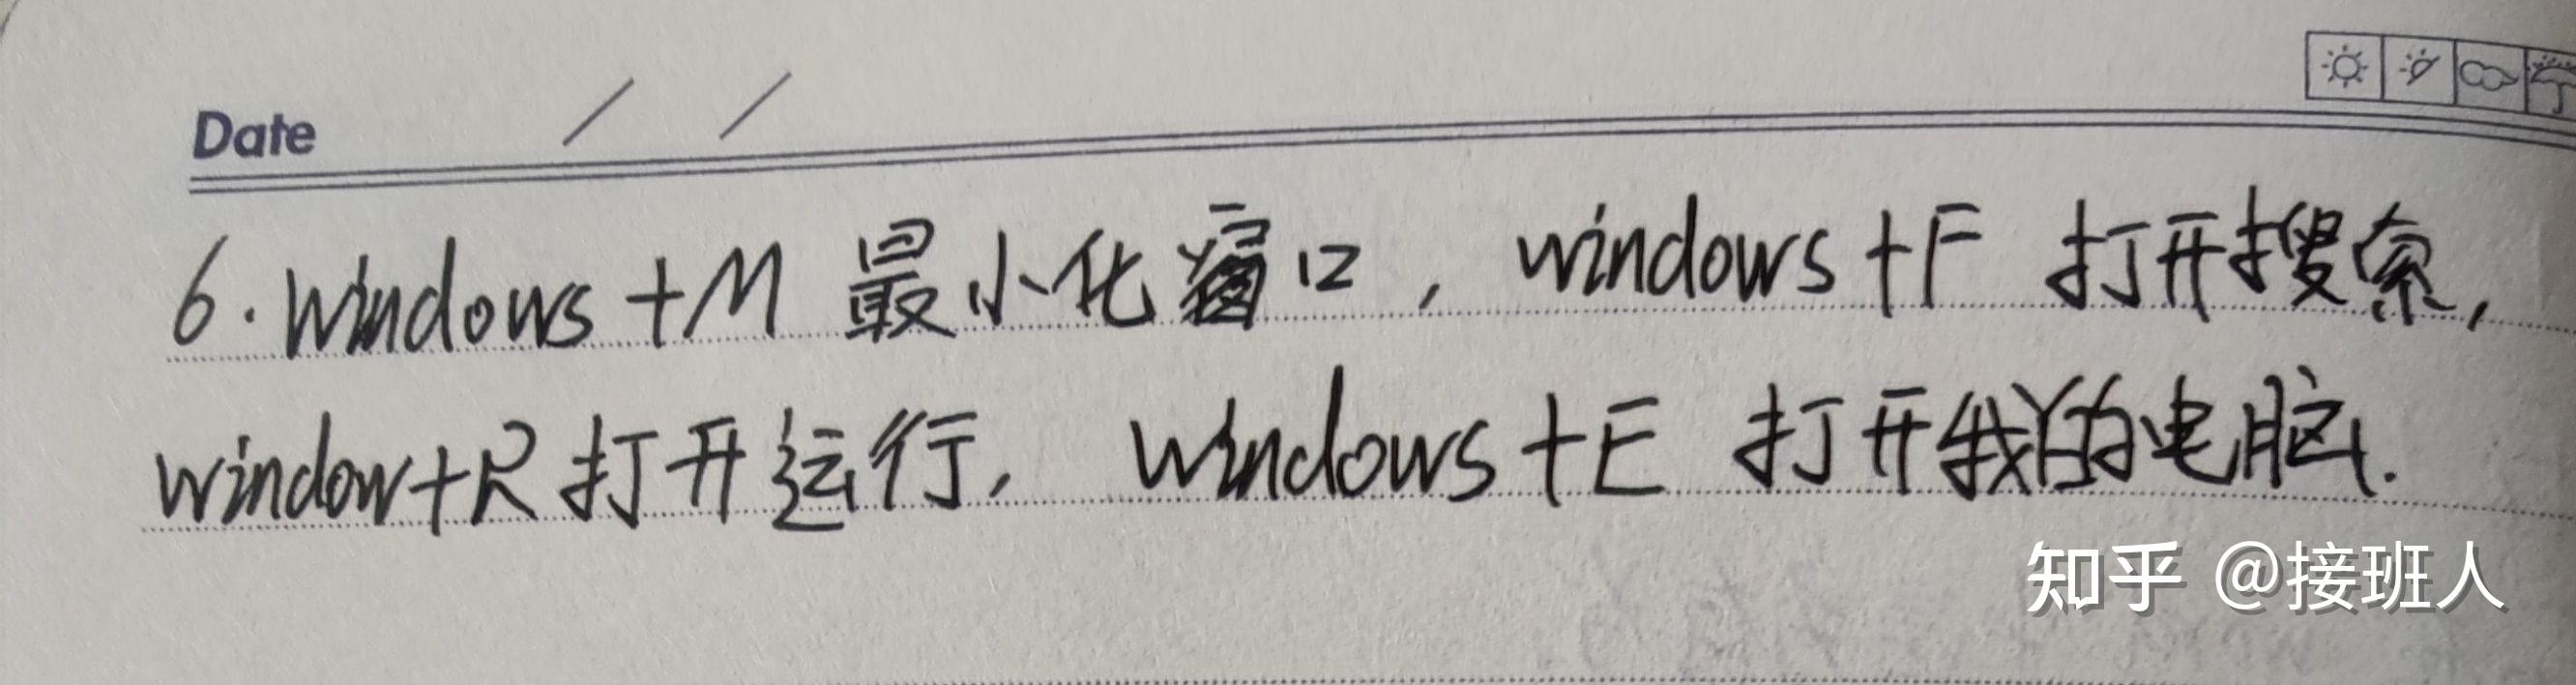 Date / /
6.Windows+M 最小化窗口，windows+F 打开搜索，
window+R打开运行，windows+E 打开我的电脑.
知乎 @接班人